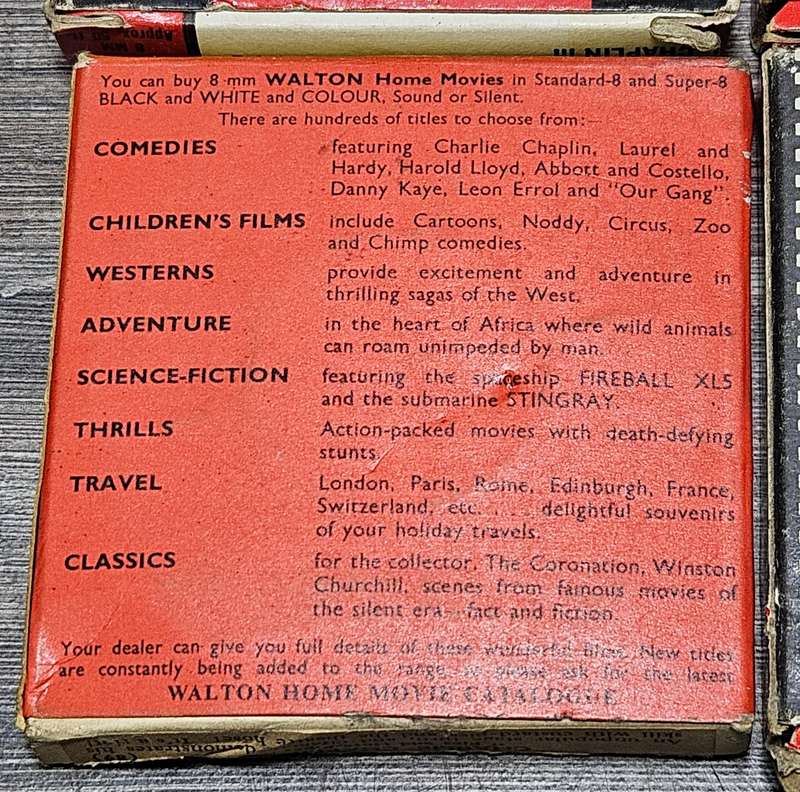 8 MM
Approx. 50 ft.
CHAPLIN III
You can buy 8-mm WALTON Home Movies in Standard-8 and Super-8
BLACK and WHITE and COLOUR, Sound or Silent.
There are hundreds of titles to choose from:—
COMEDIES featuring Charlie Chaplin, Laurel and
Hardy, Harold Lloyd, Abbott and Costello,
Danny Kaye, Leon Errol and "Our Gang".
CHILDREN'S FILMS include Cartoons, Noddy, Circus, Zoo
and Chimp comedies.
WESTERNS provide excitement and adventure in
thrilling sagas of the West.
ADVENTURE in the heart of Africa where wild animals
can roam unimpeded by man.
SCIENCE-FICTION featuring the spaceship FIREBALL XL5
and the submarine STINGRAY.
THRILLS Action-packed movies with death-defying
stunts.
TRAVEL London, Paris, Rome, Edinburgh, France,
Switzerland, etc. . . . delightful souvenirs
of your holiday travels.
CLASSICS for the collector, The Coronation, Winston
Churchill, scenes from famous movies of
the silent era—fact and fiction.
Your dealer can give you full details of these wonderful films. New titles
are constantly being added to the range, so please ask for the latest
WALTON HOME MOVIE CATALOGUE
demonstrates his
skill with